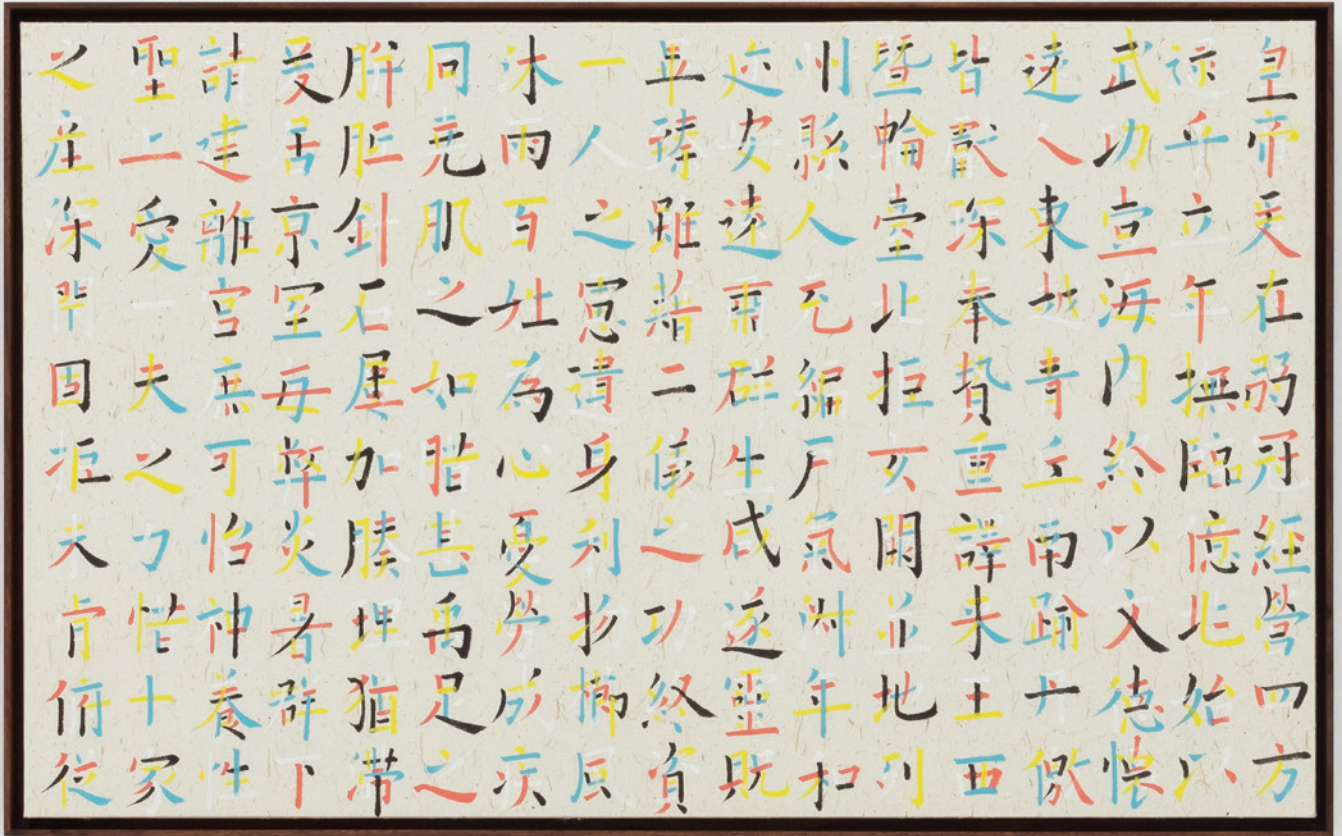 皇帝爰在弱冠經營四方
逮乎立年撫臨億兆始以
武功壹海內終以文德懷
遠人東越青丘南踰丹徼
皆獻琛奉贄重譯来王西
暨輪臺北拒玄闕並地列
州縣人充編戶氣淑年和
迩安遠肅群生咸遂靈貺
畢臻雖藉二儀之功終資
一人之慮遺身利物櫛風
沐雨百姓為心憂勞成疾
同堯肌之如腊甚禹足之
胼胝針石屢加腠理猶滯
爰居京室每弊炎暑群下
請建離宮庶可怡神養性
聖上愛一夫之力惜十家
之產深閉固拒未肯俯從